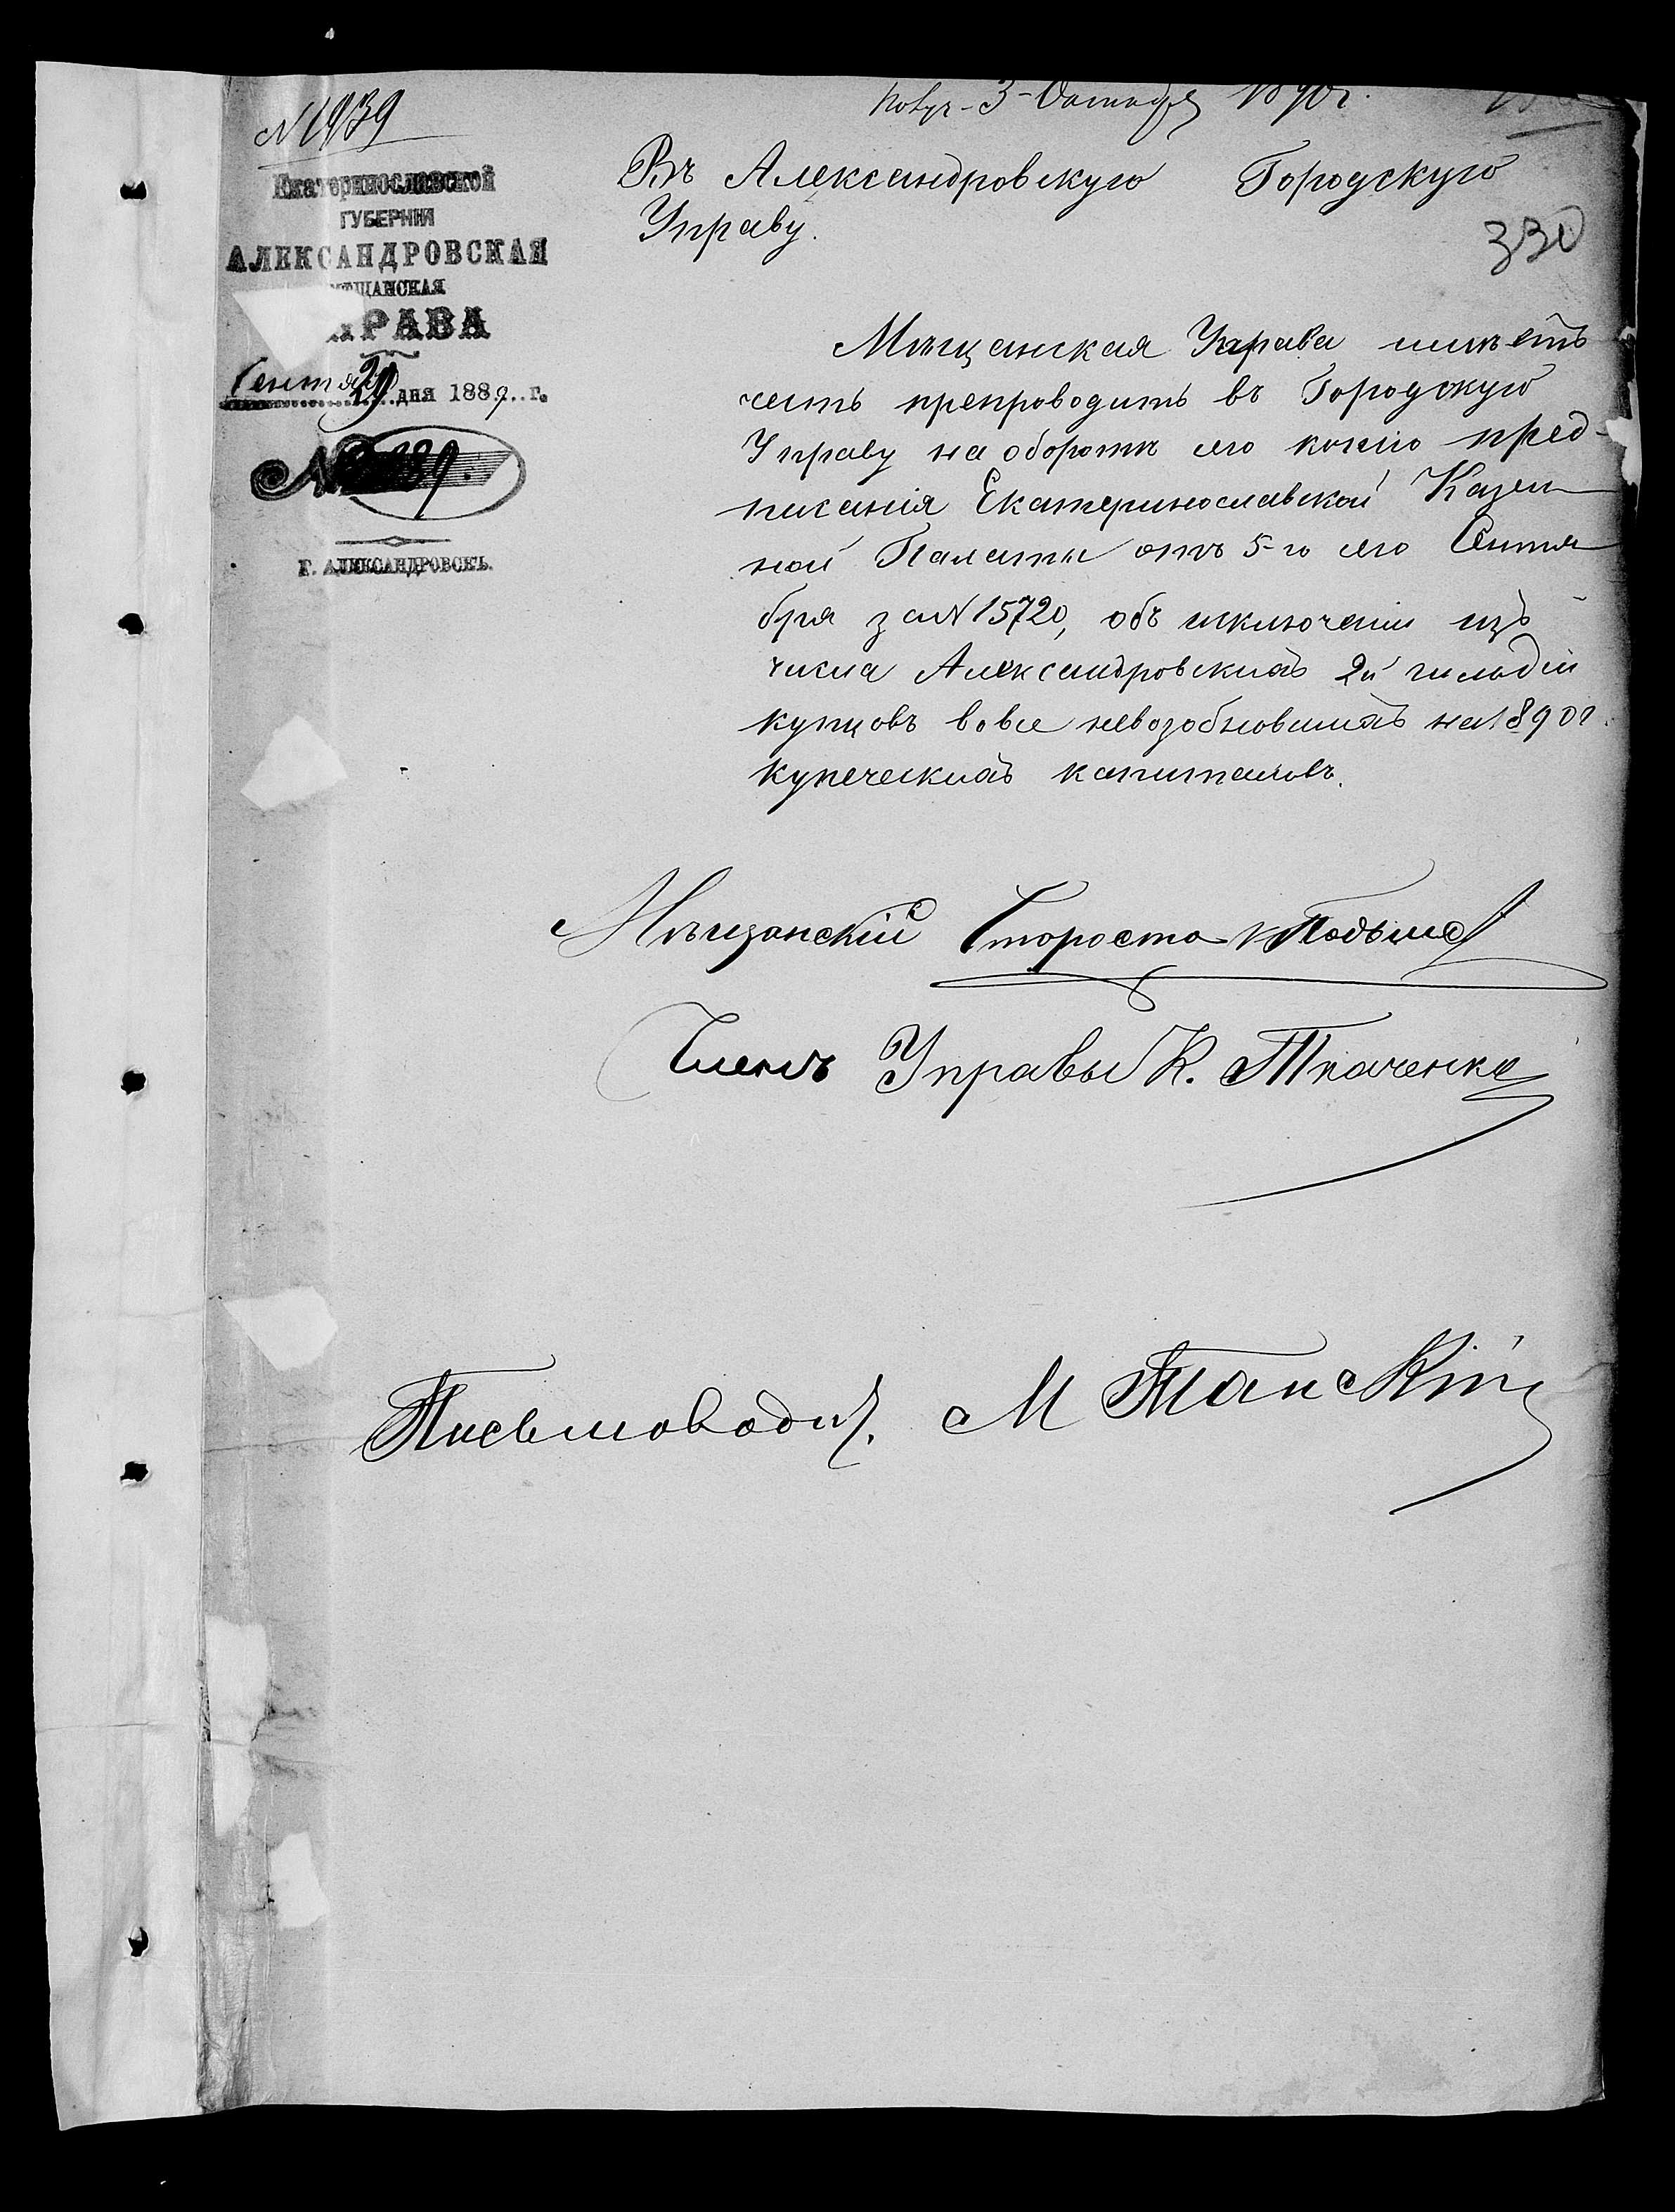 Получ. 3 Октября 1890 г.
№ 1939
Екатеринославской
ГУБЕРНІИ
АЛЕКСАНДРОВСКАЯ
МѢЩАНСКАЯ
УПРАВА
Сентября
29 дня 1889 г.
№
Г. АЛЕКСАНДРОВСКЪ.
Въ Александровскую Городскую
Управу.
330
Мѣщанская Управа имѣетъ
честь препроводить въ Городскую
Управу на оборотѣ сего копію пред-
писанія Екатеринославской Казен
ной Палаты отъ 5-го сего Сентя
бря за № 15720, объ исключеніи изъ
числа Александровскихъ 2й гильдіи
купцовъ вовсе невозобновившихъ на 1890 г.
купеческихъ капиталовъ.
Мѣщанскій Староста
Членъ Управы К. Ткаченко
Письмовод. М Танскій